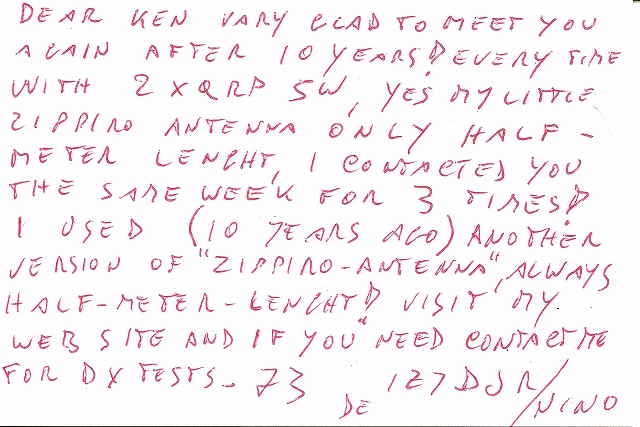 DEAR KEN VARY GLAD TO MEET YOU
AGAIN AFTER 10 YEARS! EVERY TIME
WITH 2XQRP 5W, YES MY LITTLE
ZIPPIRO ANTENNA ONLY HALF-
METER LENGHT, I CONTACTED YOU
THE SAME WEEK FOR 3 TIMES!
I USED (10 YEARS AGO) ANOTHER
VERSION OF "ZIPPIRO-ANTENNA", ALWAYS
HALF-METER-LENGHT! VISIT MY
WEB SITE AND IF YOU NEED CONTACT ME
FOR DX TESTS- 73 DE IZ7DJR/NINO